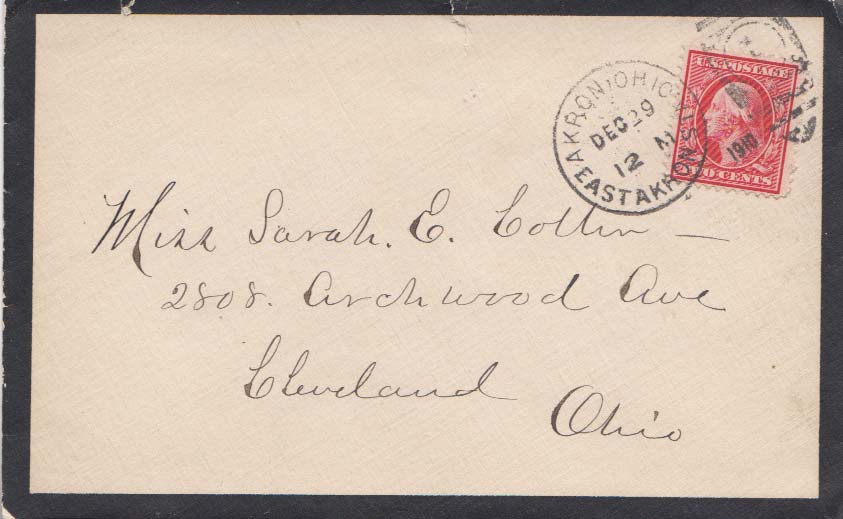 U.S. POSTAGE
AKRON, OHIO
DEC 29
12 M
1910
EAST AKRON STA.
Miss Sarah. E. Collin —
2808. Archwood Ave
Cleveland
Ohio